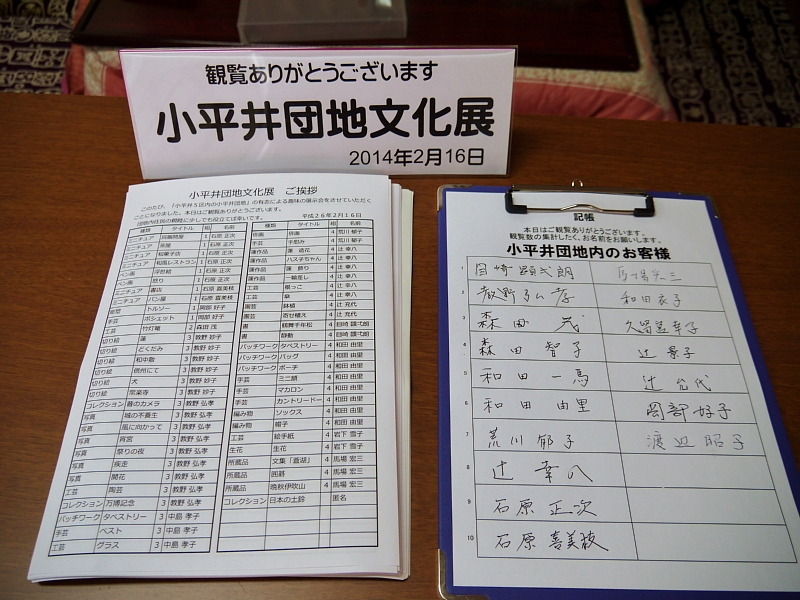 観覧ありがとうございます
小平井団地文化展
2014年2月16日
小平井団地文化展　ご挨拶
このたび、「小平井５区内の小平井団地」の有志による趣味の展示会をさせていただく
ことになりました。本日はご観覧ありがとうございます。
団地内住民の親睦に少しでも役立てば幸いです。
平成２６年２月１６日
種類 タイトル 組 名前
ミニチュア 1 石原 正次
ミニチュア 茶屋 1 石原 正次
ミニチュア 和菓子店 1 石原 正次
ミニチュア 和風レストラン 1 石原 正次
ペン画 浮世絵 1 石原 正次
ペン画 怒り 1 石原 正次
ミニチュア 書店 1 石原 喜美枝
ミニチュア パン屋 1 石原 喜美枝
トルソー 1 岡部 好子
手芸 ポシェット 1 岡部 好子
工芸 竹灯篭 2 森田 茂
切り絵 蓮 3 教野 妙子
切り絵 どくだみ 3 教野 妙子
切り絵 和中散 3 教野 妙子
切り絵 信州にて 3 教野 妙子
切り絵 犬 3 教野 妙子
切り絵 常楽寺 3 教野 妙子
コレクション 昔のカメラ 3 教野 弘孝
写真 城の不養生 3 教野 弘孝
写真 風に向かって 3 教野 弘孝
写真 宵宮 3 教野 弘孝
写真 祭りの夜 3 教野 弘孝
写真 疾走 3 教野 弘孝
写真 開花 3 教野 弘孝
工芸 陶芸 3 教野 弘孝
コレクション 万博記念 3 教野 弘孝
パッチワーク タペストリー 3 中島 孝子
手芸 ベスト 3 中島 孝子
工芸 グラス 3 中島 孝子
種類 タイトル 組 名前
俳画 俳画 4 荒川 郁子
手芸 手刻み 4 荒川 郁子
蓮作品 蓮 造花 4 辻 幸八
蓮作品 ハス子ちゃん 4 辻 幸八
蓮作品 蓮 飾り 4 辻 幸八
蓮作品 一輪差し 4 辻 幸八
工芸 根っこ 4 辻 幸八
工芸 傘 4 辻 幸八
園芸 鉢植 4 辻 充代
園芸 寄せ植え 4 辻 充代
書 鶴舞千年松 4 目崎 顕弌朗
書 静動 4 目崎 顕弌朗
パッチワーク タペストリー 4 和田 由里
パッチワーク バッグ 4 和田 由里
パッチワーク ポーチ 4 和田 由里
手芸 ミニ額 4 和田 由里
手芸 マカロン 4 和田 由里
手芸 カントリードー 4 和田 由里
編み物 ソックス 4 和田 由里
編み物 帽子 4 和田 由里
工芸 絵手紙 4 岩下 雪子
生花 生花 4 岩下 雪子
所蔵品 文集「蒼湖」 4 馬場 宏三
所蔵品 囲碁 4 馬場 宏三
所蔵品 晩秋伊吹山 4 馬場 宏三
コレクション 日本の土鈴 匿名
記帳
本日はご観覧ありがとうございます。
観覧数の集計したく、お名前をお願いします。
小平井団地内のお客様
1 目崎 顕弌朗 馬場宏三
2 教野 弘孝 和田衣子
3 森田 茂 久留島幸子
4 森田 智子 辻 景子
5 和田 一馬 辻 充代
6 和田 由里 岡部好子
7 荒川 郁子 渡辺昭子
8 辻 幸八
9 石原 正次
10 石原 喜美枝